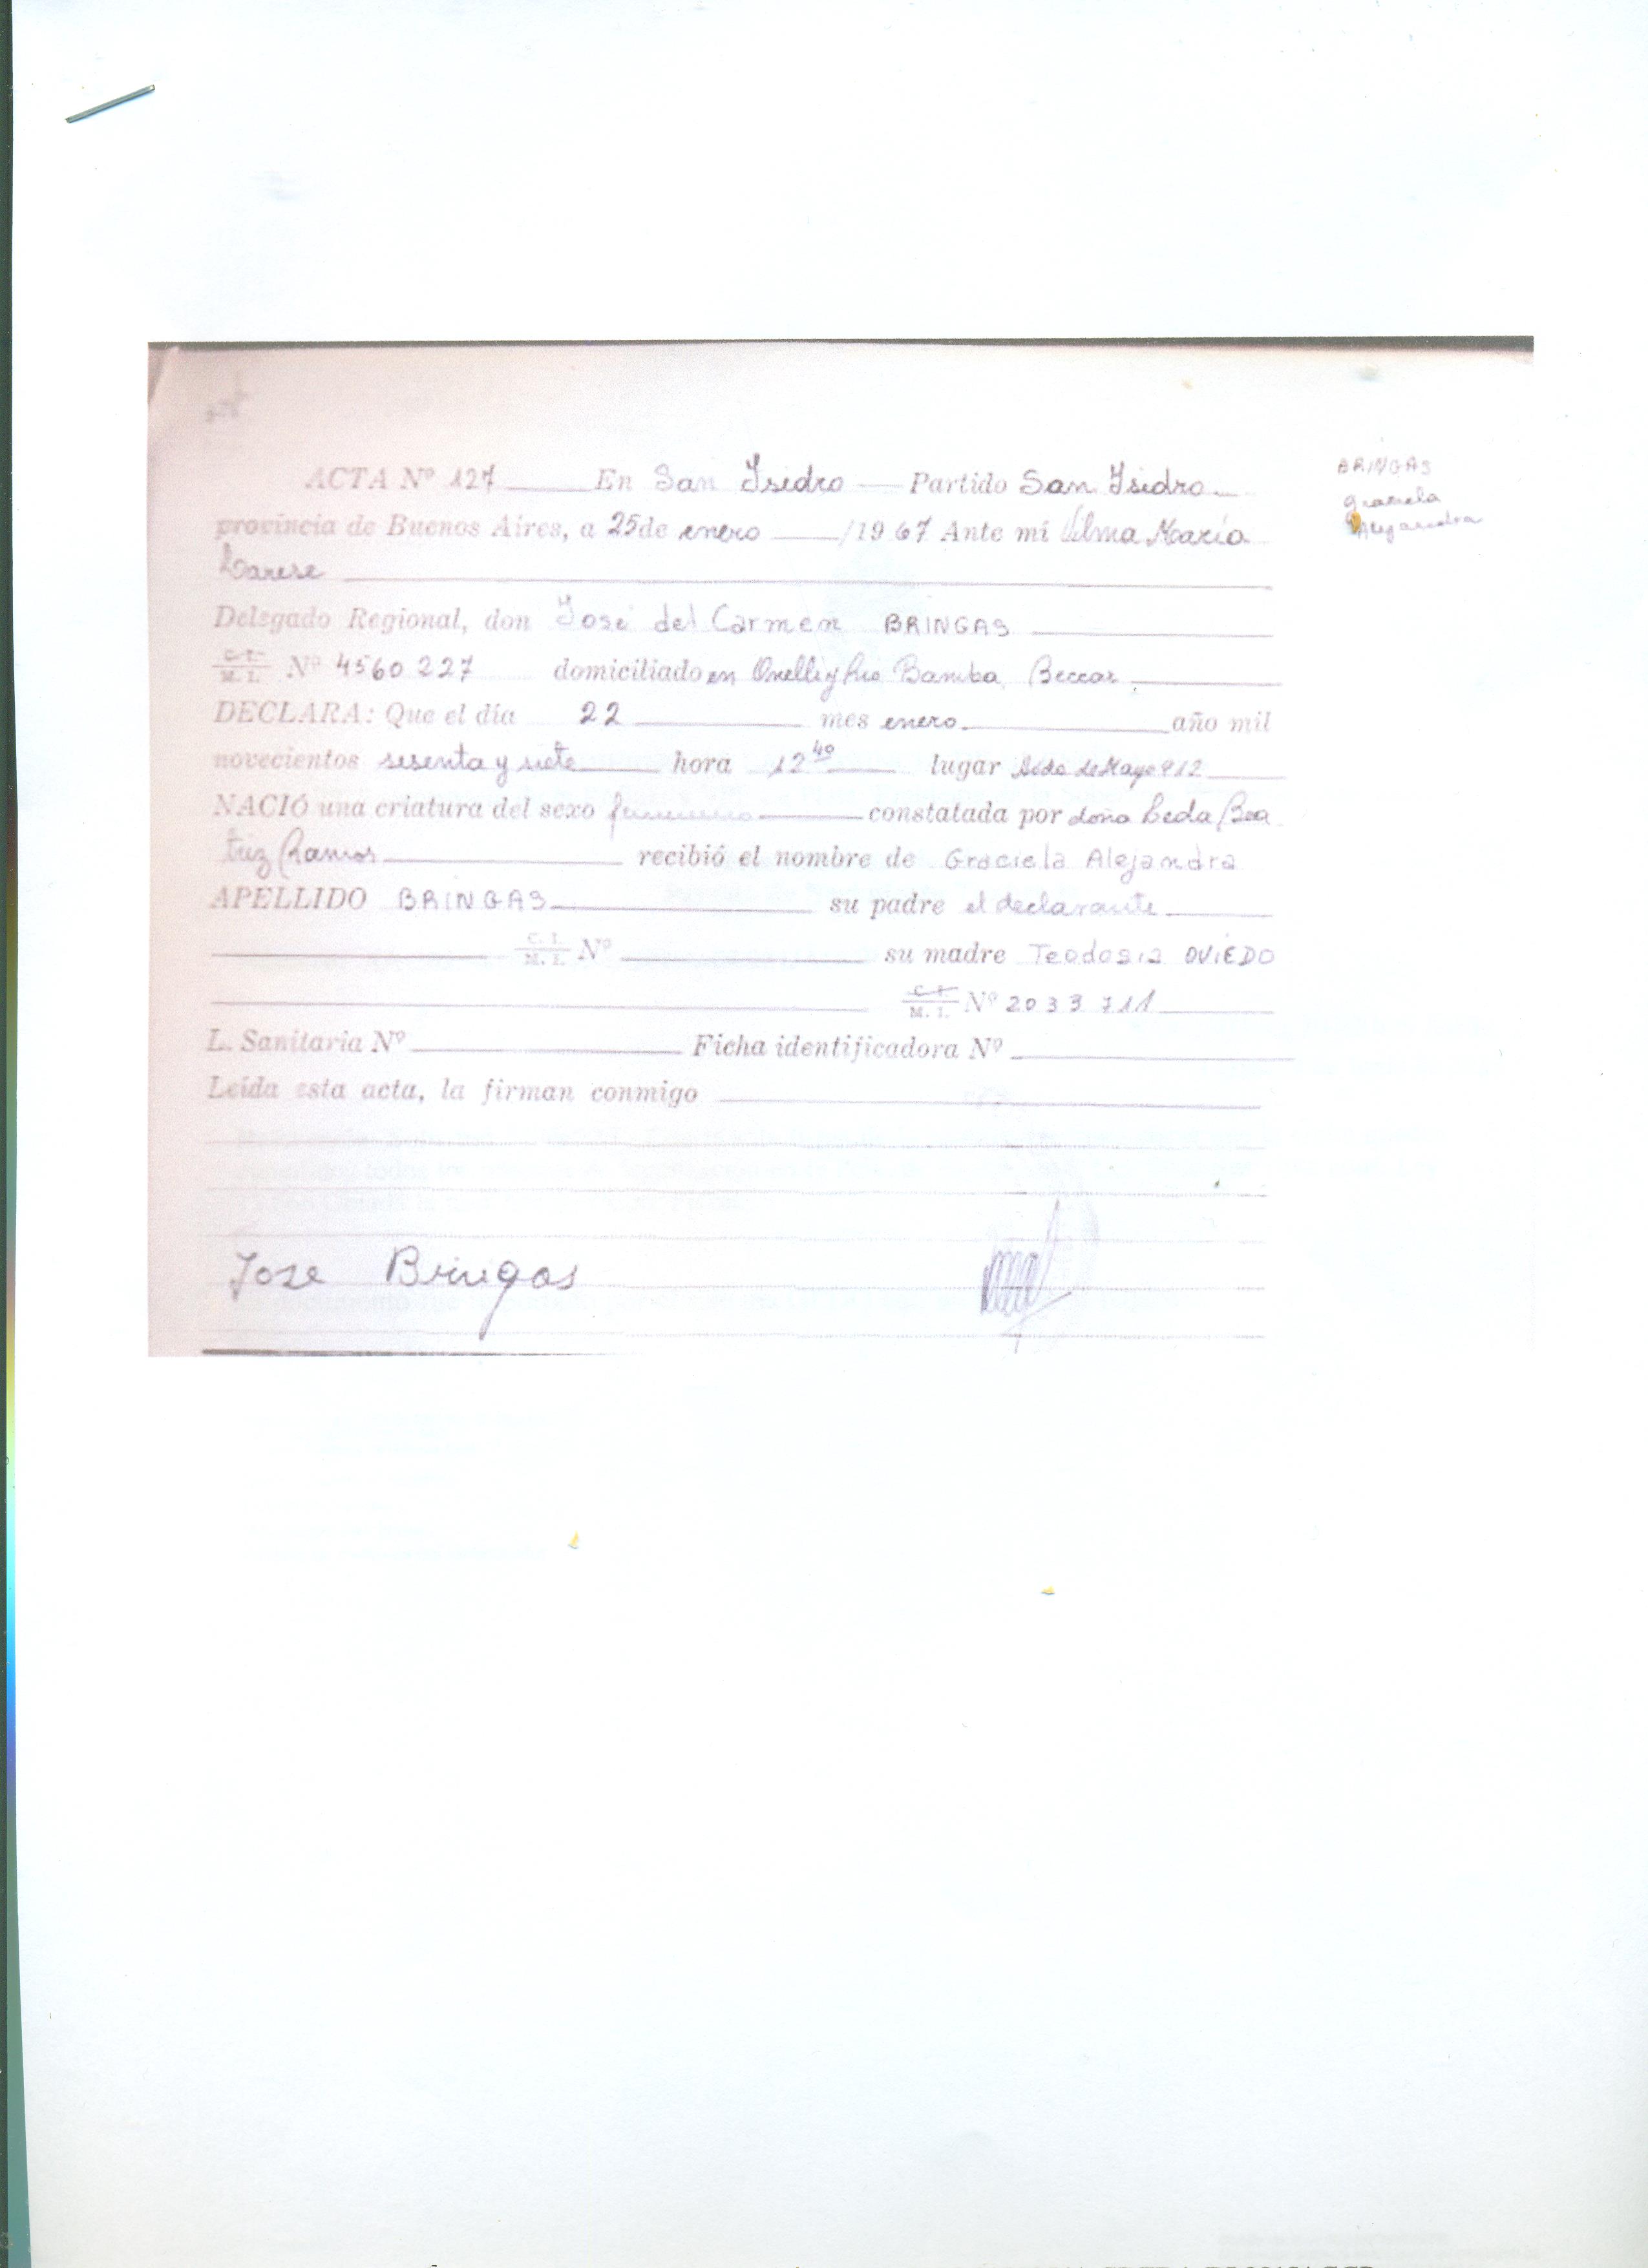 ACTA Nº 127 En San Isidro Partido San Isidro
BRINGAS
Graciela
Alejandra
provincia de Buenos Aires, a 25 de enero /1967 Ante mí Velma María
Larese
Delegado Regional, don José del Carmen BRINGAS
C. I.
M. I. Nº 4560227 domiciliado en Onelli y Rio Bamba, Beccar
DECLARA: Que el día 22 mes enero año mil
novecientos sesenta y siete hora 12 40 lugar Avda de Mayo 912
NACIÓ una criatura del sexo femenino constatada por doña Leda Bea
triz Ramos recibió el nombre de Graciela Alejandra
APELLIDO BRINGAS su padre el declarante
C. I.
M. I. Nº su madre Teodosia OVIEDO
C. I.
M. I. Nº 2033711
L. Sanitaria Nº Ficha identificadora Nº
Leída esta acta, la firman conmigo
Jose Bringas